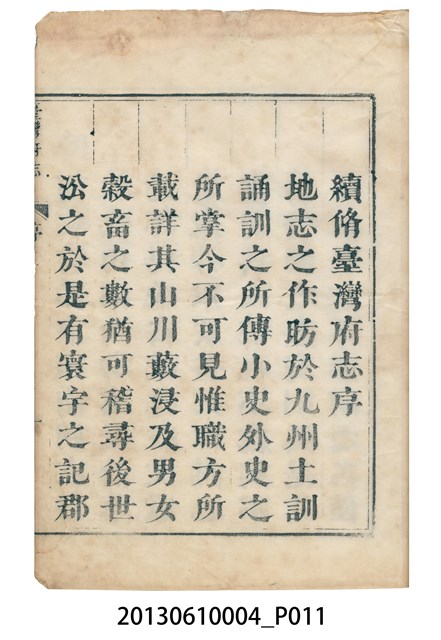 續脩臺灣府志序
地志之作昉於九州土訓
誦訓之所傳小史外史之
所掌今不可見惟職方所
載詳其山川藪浸及男女
穀畜之數猶可稽尋後世
㳂之於是有寰宇之記郡
府志
序
20130610004_P011